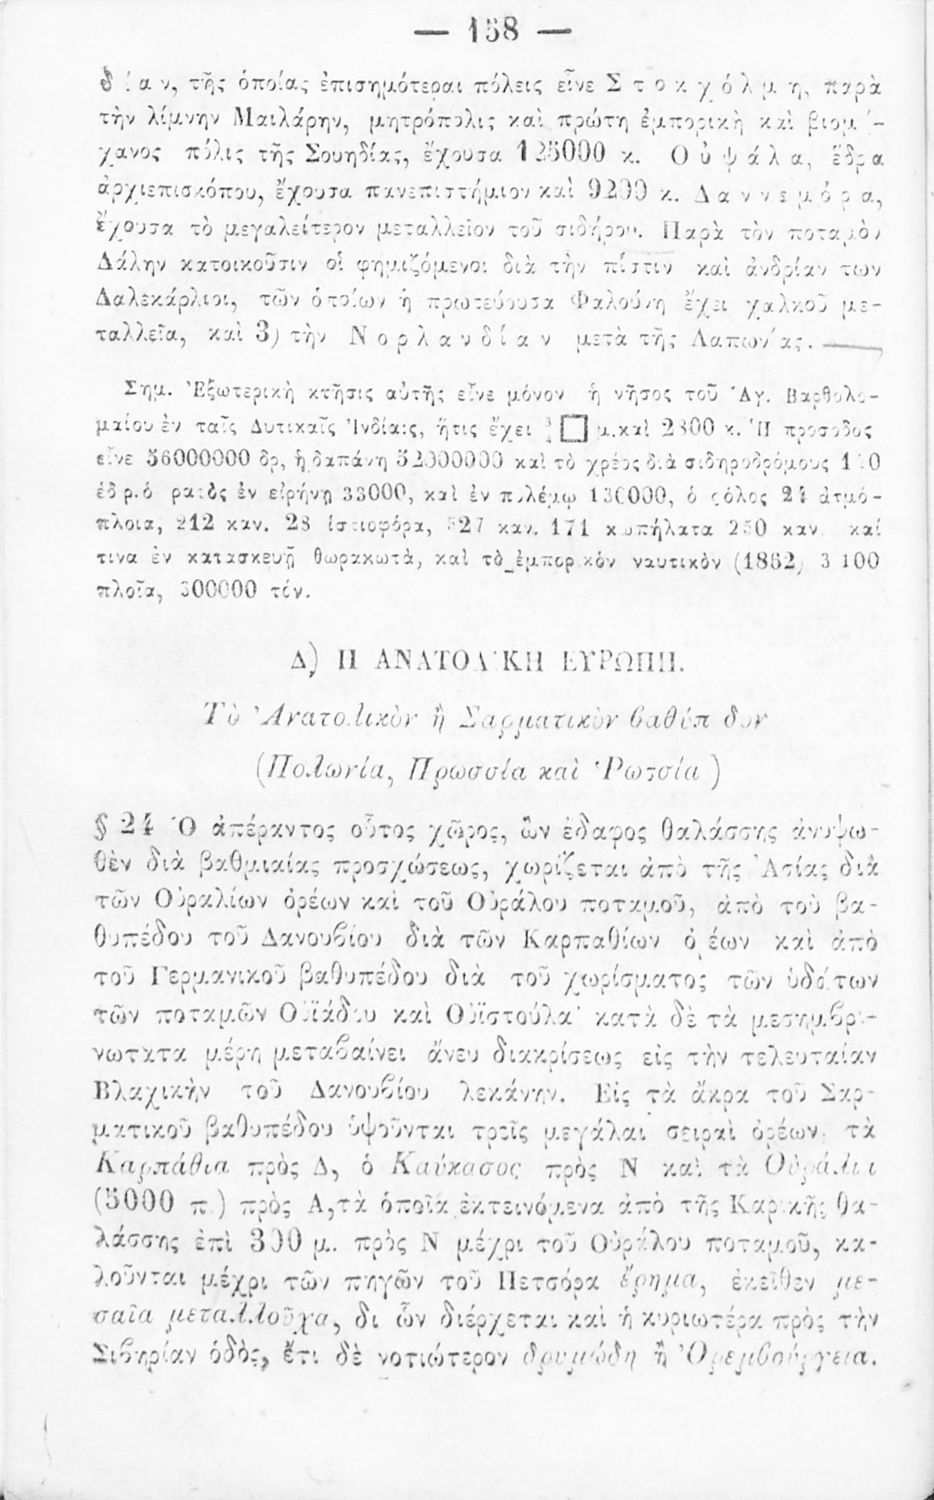 — 158 —
δίαν, τῆς ὁποίας ἐπισημότεραι πόλεις εἶνε Στοκχόλμη, παρὰ
τὴν λίμνην Μαιλάρην, μητρόπολις καὶ πρώτη ἐμπορικὴ καὶ βιομή-
χανος πόλις τῆς Σουηδίας, ἔχουσα 125000 κ. Οὐψάλα, ἕδρα
ἀρχιεπισκόπου, ἔχουσα πανεπιστήμιον καὶ 9200 κ. Δαννεμόρα,
ἔχουσα τὸ μεγαλείτερον μεταλλεῖον τοῦ σιδήρου. Παρὰ τὸν ποταμὸν
Δάλην κατοικοῦσιν οἱ φημιζόμενοι διὰ τὴν πίστιν καὶ ἀνδρίαν των
Δαλεκάρλιοι, τῶν ὁποίων ἡ πρωτεύουσα Φαλούνη ἔχει χαλκοῦ με-
ταλλεῖα, καὶ 3) τὴν Νορλανδίαν μετὰ τῆς Λαπωνίας.
Σημ. Ἐξωτερικὴ κτῆσις αὐτῆς εἶνε μόνον ἡ νῆσος τοῦ Ἁγ. Βαρθολο-
μαίου ἐν ταῖς Δυτικαῖς Ἰνδίαις, ἥτις ἔχει ¾ □ μ. καὶ 2800 κ. Ἡ πρόσοδος
εἶνε 56000000 δρ, ἡ δαπάνη 52000000 καὶ τὸ χρέος διὰ σιδηροδρόμους
ἐν εἰρήνῃ 33000, καὶ ἐν πολέμῳ 130000, ὁ στόλος 24 ἀτμό-
πλοια, 212 καν. 28 ἱστιοφόρα, 527 καν. 171 κωπήλατα 250 καν. καί
τινα ἐν κατασκευῇ θωρακωτὰ, καὶ τὸ ἐμπορικὸν ναυτικὸν (1862) 3100
πλοῖα, 300000 τόν.
Δ) Η ΑΝΑΤΟΛΙΚΗ ΕΥΡΩΠΗ.
Τὸ Ἀνατολικὸν ἢ Σαρματικὸν βαθύπεδον
(Πολωνία, Πρωσσία καὶ Ῥωσσία)
§ 24 Ὁ ἀπέραντος οὗτος χῶρος, ὢν ἔδαφος θαλάσσης ἀνυψω-
θὲν διὰ βαθμιαίας προσχώσεως, χωρίζεται ἀπὸ τῆς Ἀσίας διὰ
τῶν Οὐραλίων ὀρέων καὶ τοῦ Οὐράλου ποταμοῦ, ἀπὸ τοῦ βα-
θυπέδου τοῦ Δανουβίου διὰ τῶν Καρπαθίων ὀρέων καὶ ἀπὸ
τοῦ Γερμανικοῦ βαθυπέδου διὰ τοῦ χωρίσματος τῶν ὑδάτων
τῶν ποταμῶν Οὐϊάδου καὶ Οὐϊστούλα· κατὰ δὲ τὰ μεσημβρι-
νώτατα μέρη μεταβαίνει ἄνευ διακρίσεως εἰς τὴν τελευταίαν
Βλαχικὴν τοῦ Δανουβίου λεκάνην. Εἰς τὰ ἄκρα τοῦ Σαρ-
ματικοῦ βαθυπέδου ὑψοῦνται τρεῖς μεγάλαι σειραὶ ὀρέων, τὰ
Καρπάθια πρὸς Δ, ὁ Καύκασος πρὸς Ν καὶ τὰ Οὐράλια
(5000 π.) πρὸς Α, τὰ ὁποῖα ἐκτεινόμενα ἀπὸ τῆς Καρικῆς θα-
λάσσης ἐπὶ 300 μ. πρὸς Ν μέχρι τοῦ Οὐράλου ποταμοῦ, κα-
λοῦνται μέχρι τῶν πηγῶν τοῦ Πετσόρα ἔρημα, ἐκεῖθεν με-
σαῖα μεταλλοῦχα, δι ὧν διέρχεται καὶ ἡ κυριωτέρα πρὸς τὴν
Σιβηρίαν ὁδὸς, ἔτι δὲ νοτιώτερον δρυμώδη ἢ Ὀρεμβούργεια.